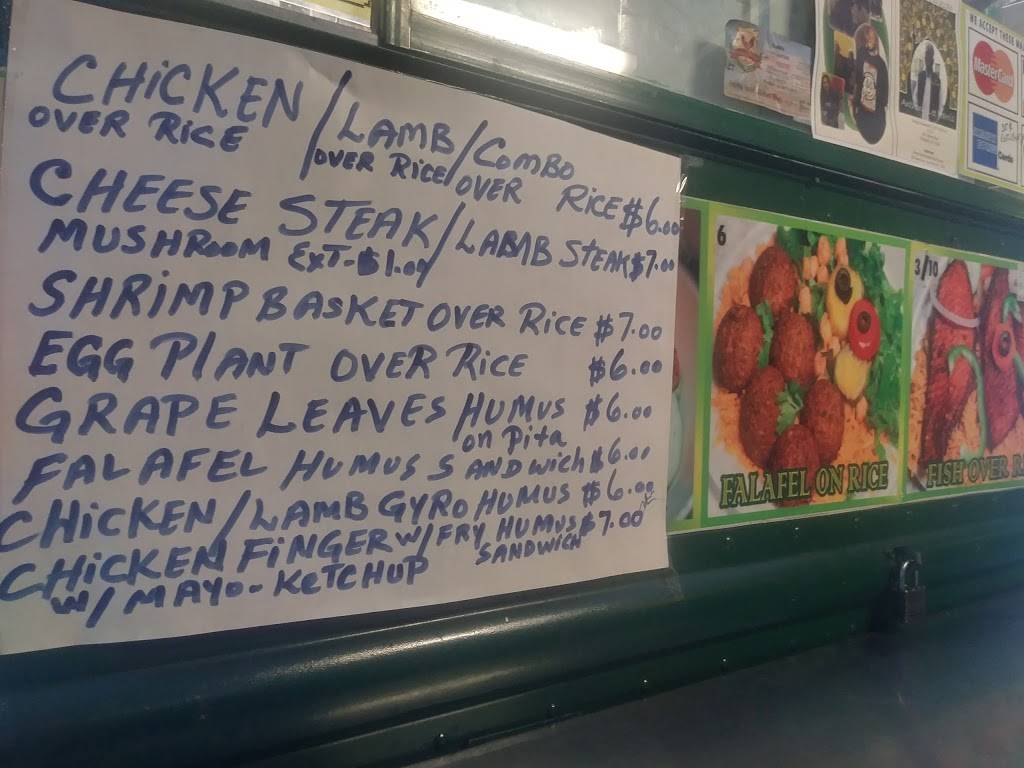 CHiCKEN / LAMB / COMBO
OVER RiCE OVER RiCE OVER RiCE $6.00
CHEESE STEAK / LAMB STEAK $7.00
MUSHROOM EXT-$1.00
SHRIMP BASKET OVER RiCE $7.00
EGG PLANT OVER RICE $6.00
GRAPE LEAVES HUMUS $6.00
on Pita
FALAFEL HUMUS SANDwich $6.00
CHiCKEN / LAMB GYRO HUMUS $6.00
CHiCKEN FiNGER w/ FRY HUMUS $7.00
SANDWICH
W/ MAYO-KETCHUP
6
FALAFEL ON RICE
3/10
FISH OVER R
WE ACCEPT THESE
MasterCard